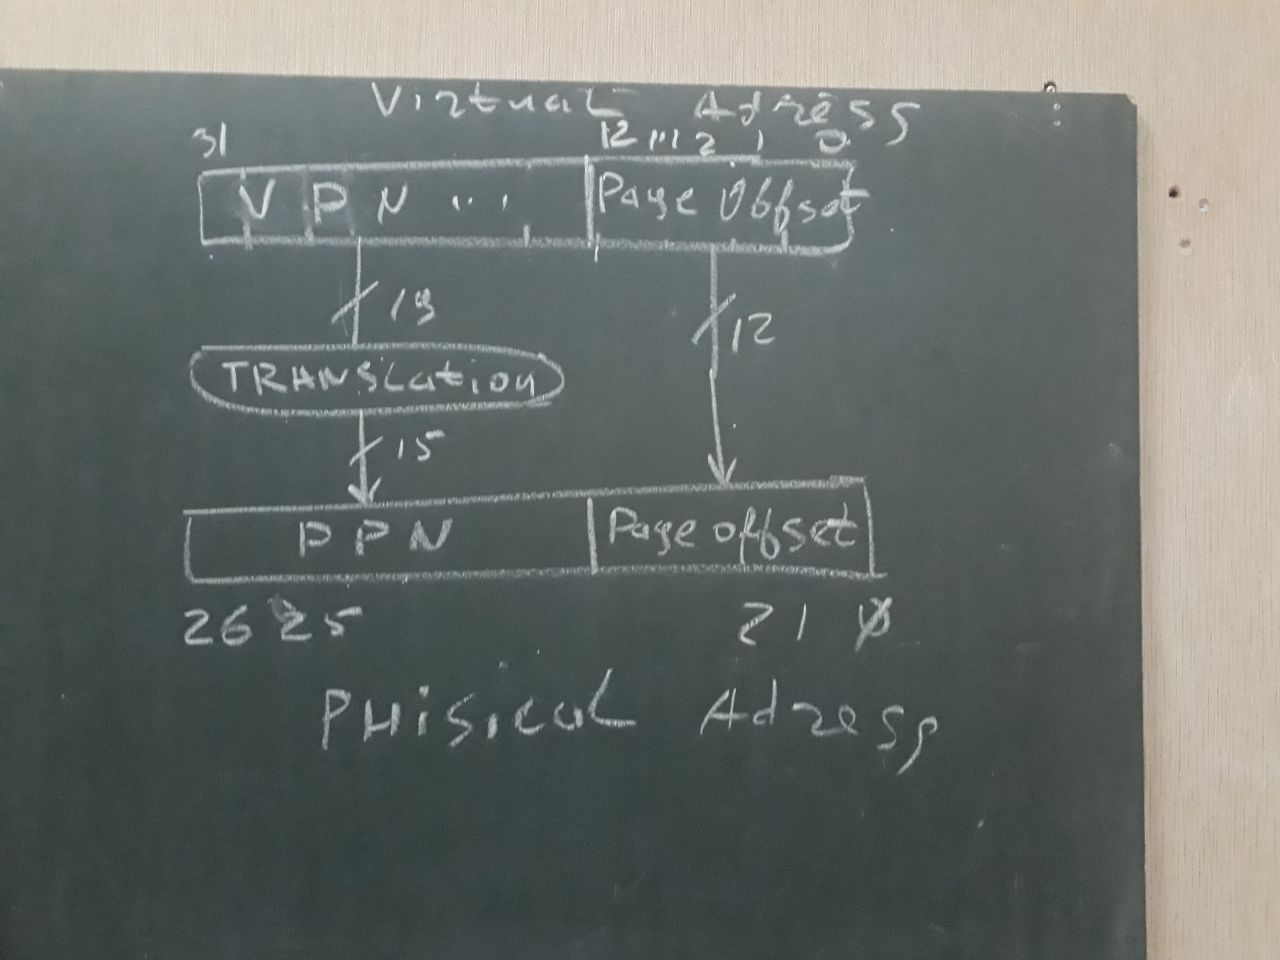 Virtual Adress
31 12 ... 2 1 0
V P N ... Page Offset
19 12
TRANSLation
15
P P N Page offset
26 25 2 1 0
PHisical Adress